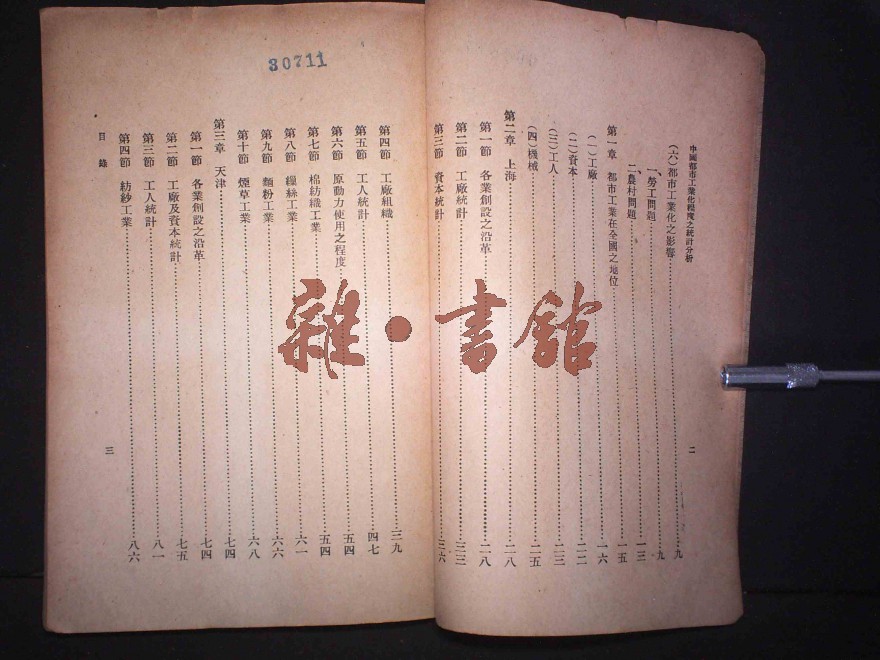 中國都市工業化程度之統計分析
二
(六)都市工業化之影響……九
一、勞工問題……九
二、農村問題……一三
第一章 都市工業在全國之地位……一五
(一)工廠……一六
(二)資本……二二
(三)工人……二三
(四)機械……二五
第二章 上海……二八
第一節 各業創設之沿革……二八
第二節 工廠統計……三三
第三節 資本統計……三六
30711
第四節 工廠組織……三九
第五節 工人統計……四七
第六節 原動力使用之程度……五四
第七節 棉紡織工業……五四
第八節 繅絲工業……六一
第九節 麵粉工業……六六
第十節 煙草工業……六八
第三章 天津……七四
第一節 各業創設之沿革……七四
第二節 工廠及資本統計……七五
第三節 工人統計……八一
第四節 紡紗工業……八六
目錄
三
雜·書館